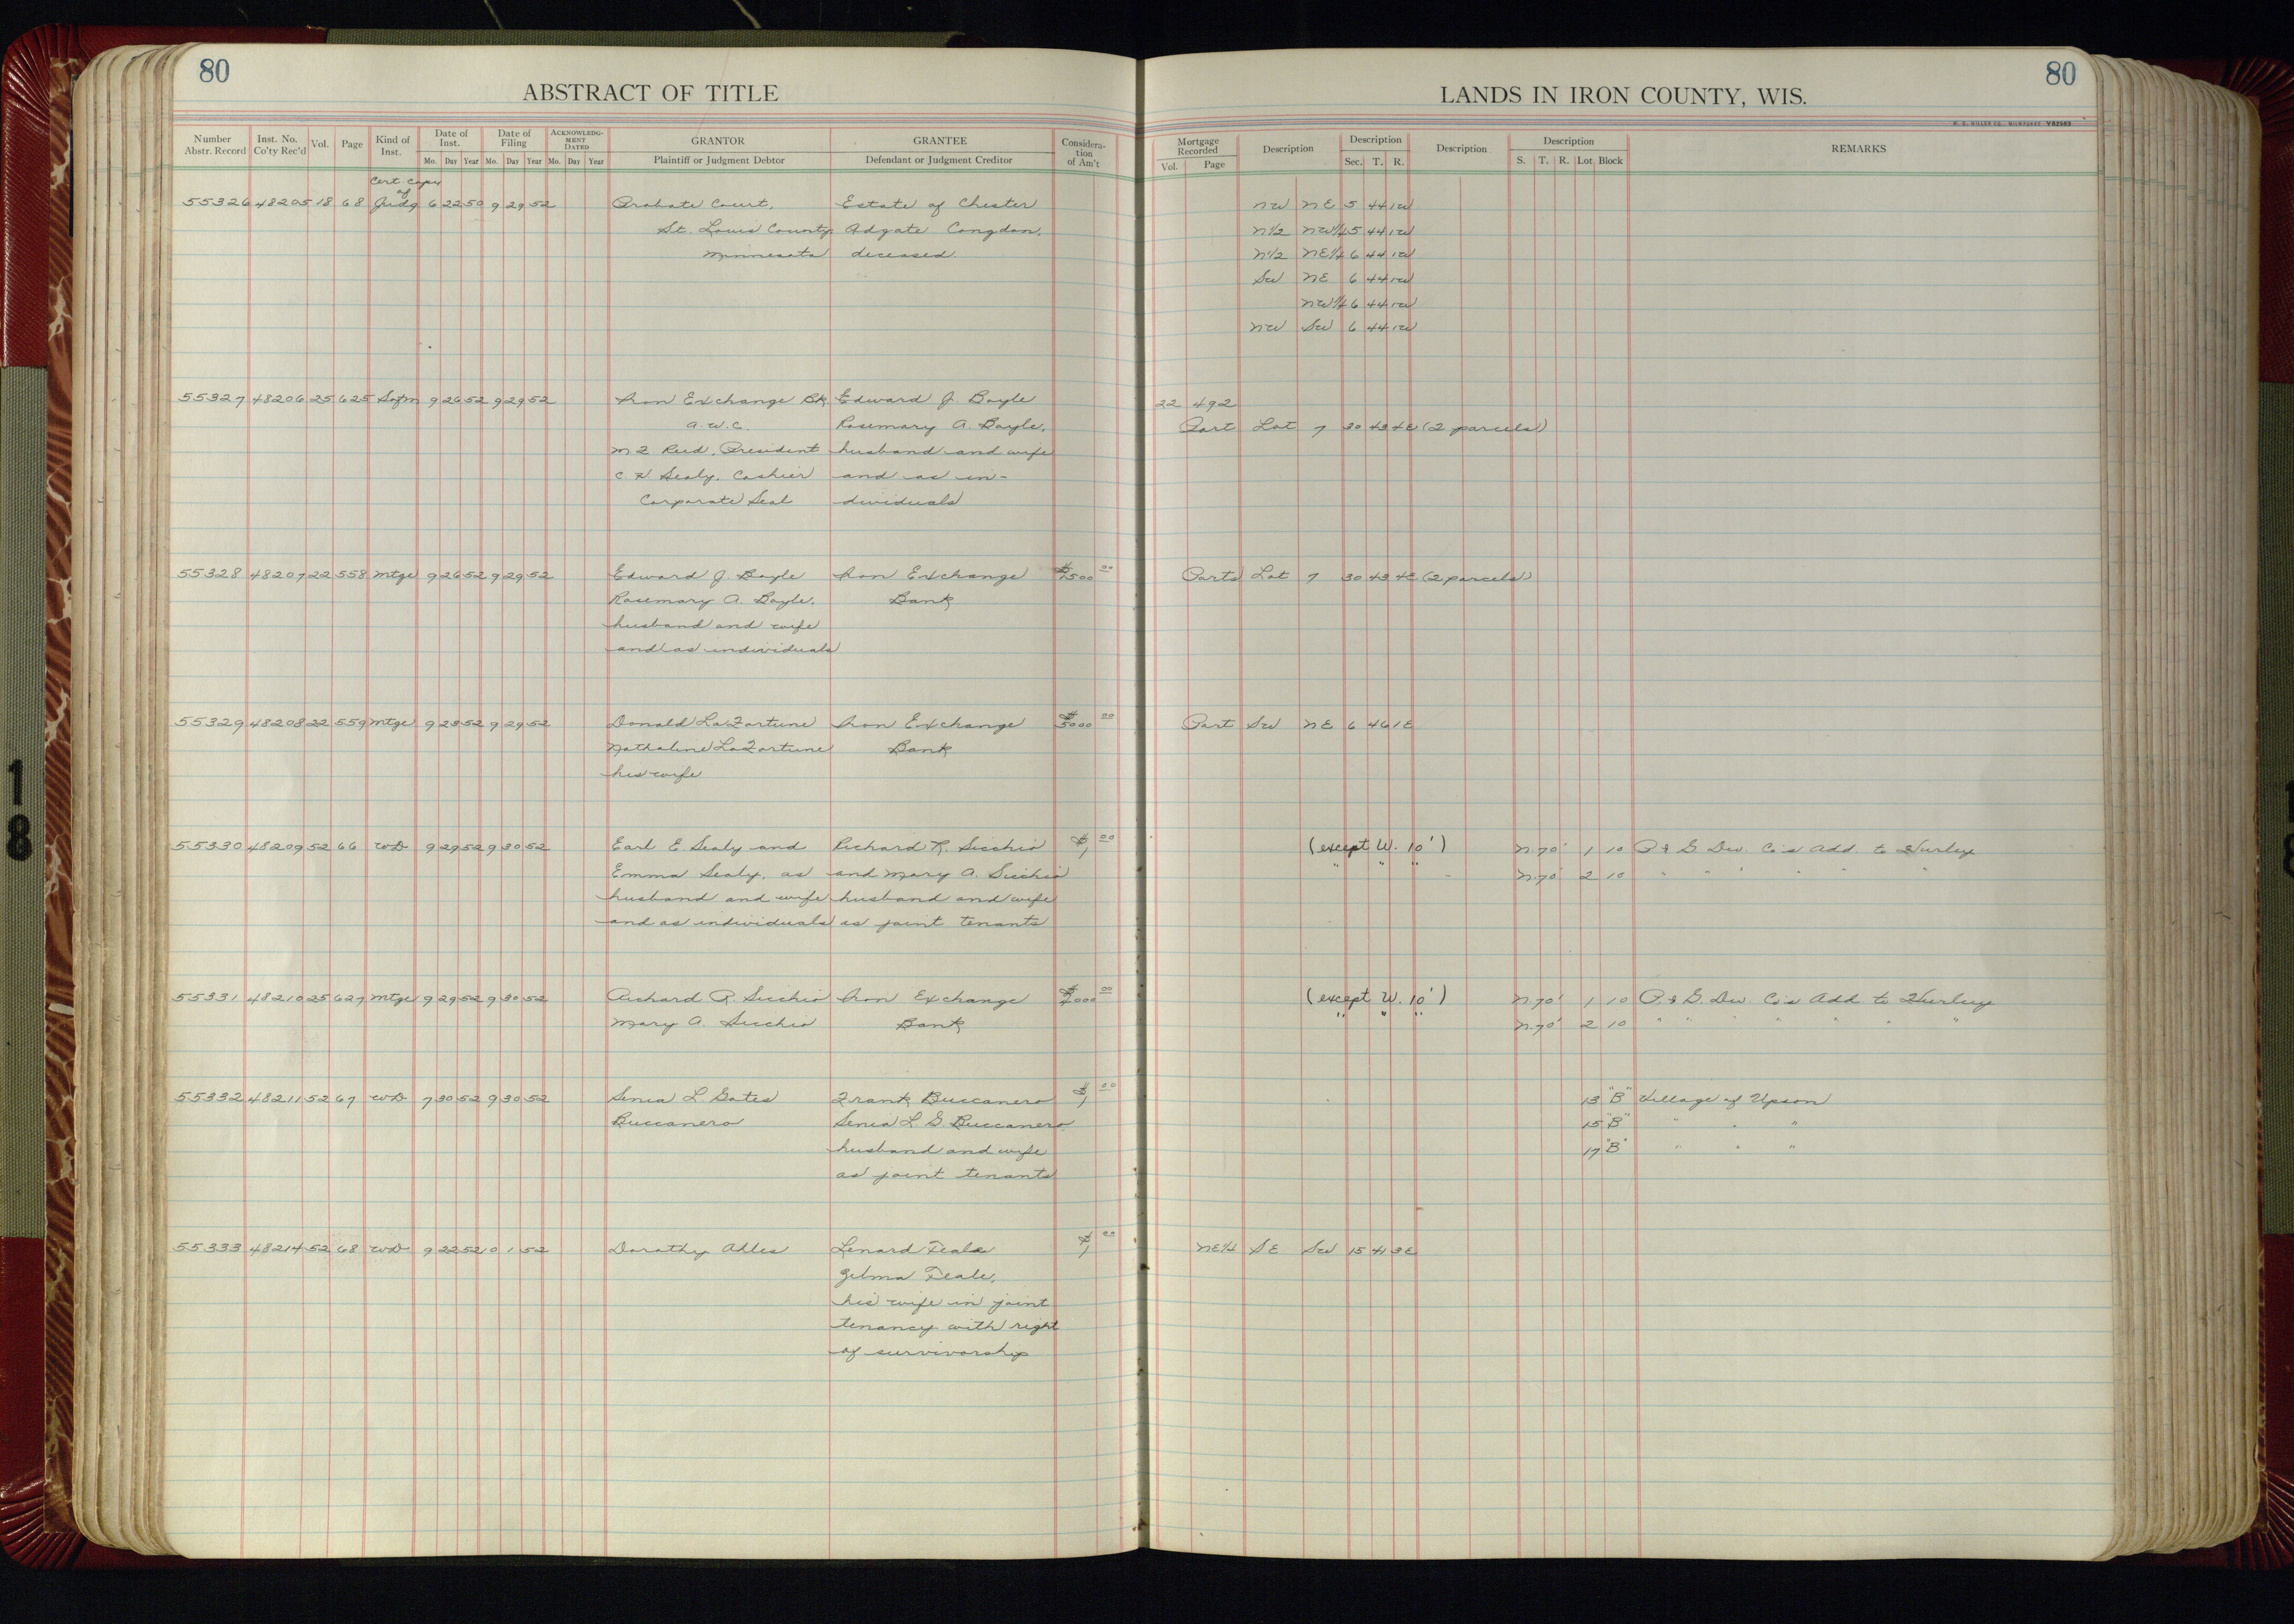 80
ABSTRACT OF TITLE
LANDS IN IRON COUNTY, WIS.
80
H. C. MILLER CO., MILWAUKEE Y82983
Number Abstr. Record Inst. No. Co'ty Rec'd Vol. Page Kind of Inst. Date of Inst. Mo. Day Year Date of Filing Mo. Day Year ACKNOWLEDGMENT DATED Mo. Day Year GRANTOR Plaintiff or Judgment Debtor GRANTEE Defendant or Judgment Creditor Consideration of Am't
Mortgage Recorded Vol. Page Description Description Sec. T. R. Description Description S. T. R. Lot Block REMARKS
Cert Copy
of
55326 48205 18 68 Judg 6 22 50 9 29 52 Probate Court, Estate of Chester NW NE 5 44 1W
St. Louis County Adgate Congdon, N1/2 NW1/4 5 44 1W
Minnesota deceased. N1/2 NE1/4 6 44 1W
SW NE 6 44 1W
NW1/4 6 44 1W
NW SW 6 44 1W
55327 48206 25 625 Satfn 9 26 52 9 29 52 Iron Exchange Bk. Edward J. Boyle 22 492
a.w.c. Rosemary A. Boyle, Part Lot 7 30 43 4E (2 parcels)
Reid, President husband and wife
Sealy, Cashier and as in-
Corporate Seal dividuals
55328 48207 22 558 Mtge 9 26 52 9 29 52 Edward J. Boyle Iron Exchange $7500 00 Parts Lot 7 30 43 4E (2 parcels)
Rosemary A. Boyle, Bank
husband and wife
and as individuals
55329 48208 22 559 Mtge 9 23 52 9 29 52 Donald LaFortune Iron Exchange $5000 00 Part SW NE 6 46 1E
Nathaline LaFortune Bank
his wife
55330 48209 52 66 WD 9 29 52 9 30 52 Earl E Sealy and Richard R. Secchio $1 00 (except W. 10') N.70' 1 10 P & G Dev. Co's Add. to Hurley
Emma Sealy, as and Mary A. Secchio " " " N.70' 2 10 " " " " " "
husband and wife husband and wife
and as individuals as joint tenants
55331 48210 25 627 Mtge 9 29 52 9 30 52 Richard R. Secchio Iron Exchange $7000 00 (except W. 10') N.70' 1 10 P & G Dev. Co's Add to Hurley
Mary A. Secchio Bank " " " N.70' 2 10 " " " " " " "
55332 48211 52 67 WD 7 30 52 9 30 52 Senia L. Gates Frank Buccanero $1 00 13 "B" Village of Upson
Buccanero Senia L. G. Buccanero 15 "B" " " "
husband and wife 17 "B" " " "
as joint tenants
55333 48214 52 68 WD 9 22 52 0 1 52 Dorothy Ahles Lenard Feale $1 00 NE1/4 SE SW 15 41 3E
Zelma Feale,
his wife in joint
tenancy with right
of survivorship
1
8